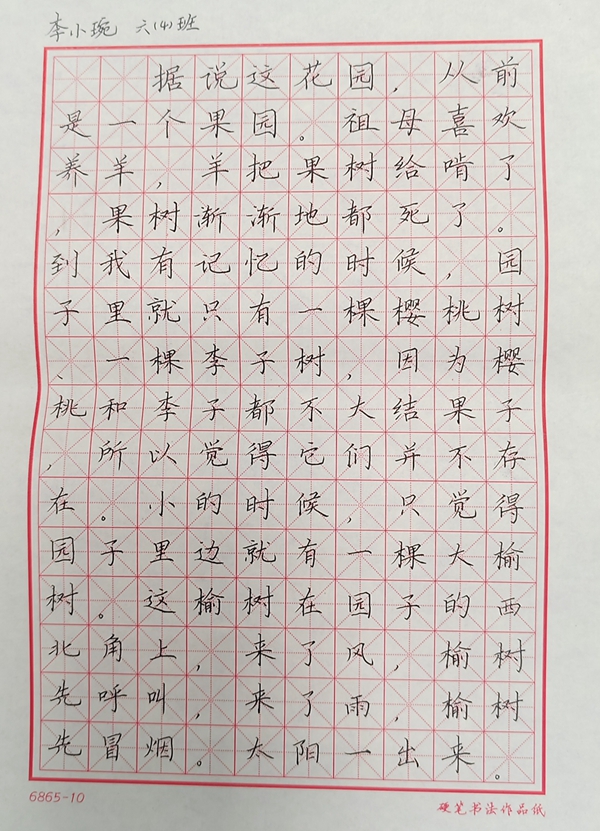 李小琬 六(4)班
据说这花园，从前
是一个果园。祖母喜欢
养羊，羊把果树给啃了
，果树渐渐地都死了。
到我有记忆的时候，园
子里就只有一棵樱桃树
、一棵李子树，因为樱
桃和李子都不大结果子
，所以觉得它们并不存
在。小的时候，只觉得
园子里边就有一棵大榆
树。这榆树在园子的西
北角上，来了风，榆树
先呼叫，来了雨，榆树
先冒烟。太阳一出来。
6865-10 硬笔书法作品纸